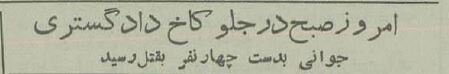 امروز صبح در جلو کاخ دادگستری
جوانی بدست چهار نفر بقتل رسید